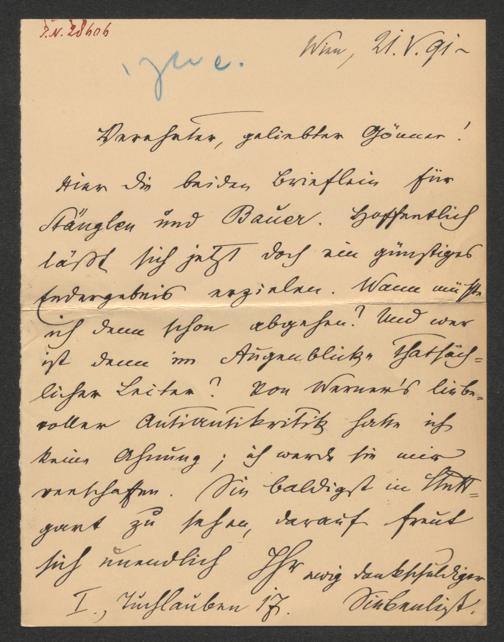 I.N. 28606
Wien, 21. V. 91 –
Verehrter, geliebter Gönner!
Hier die beiden Brieflein für
und Bauer. Hoffentlich
läßt sich jetzt doch ein günstiges
Endergebnis erzielen. Wann müßte
ich denn schon abgehen? Und wer
ist denn im Augenblicke thatsäch-
licher Leiter? Von Werner's liebe-
voller Antiantikritik hatte ich
keine Ahnung; ich werde sie mir
verschaffen. Sie baldigst in Stutt-
gart zu sehen, darauf freut
sich unendlich Ihr ewig dankschuldiger
I., Tuchlauben 17.